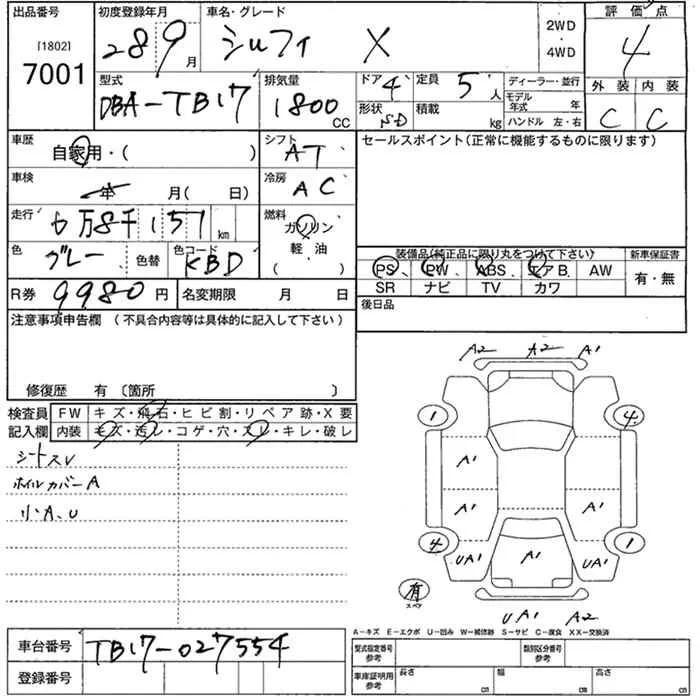 出品番号 初度登録年月 車名・グレード 評価点
[1802]
7001
28 9月 シルフィ X 2WD・4WD 4
外装 内装
C C
型式 排気量 ドア 4 定員 5人 ディーラー・並行
DBA-TB17 1800cc 形状 SD 積載 kg モデル年式 年
ハンドル 左・右
車歴 自家用・( ) シフト AT セールスポイント(正常に機能するものに限ります)
車検 年 月( 日) 冷房 AC
走行 6万8千151km 燃料 ガソリン
軽・油
( ・ )
色 グレー 色替 色コード KBD
装備品(純正品に限り丸をつけて下さい) 新車保証書
PS、PW、ABS、エアB、AW 有・無
SR ナビ TV カワ
R券 9980円 名変期限 月 日 後日品
注意事項申告欄(不具合内容等は具体的に記入して下さい)
修復歴 有〔箇所 〕
検査員 FW キズ・飛石・ヒビ割・リペア跡・X要
記入欄 内装 キズ・汚レ・コゲ・穴・スレ・キレ・破レ
シートスレ
ホイルカバーA
小A、U
A2 A2 A1
1 4
A1
A1 A1
4 1
UA1 A1 UA1
有
スペア
UA1 A2
A-キズ E-エクボ U-凹み W-補修跡 S-サビ C-腐食 XX-交換済
車台番号 TB17-027554
登録番号
型式指定番号 参考 類別区分番号 参考
車庫証明用 参考 長さ cm 幅 cm 高さ cm